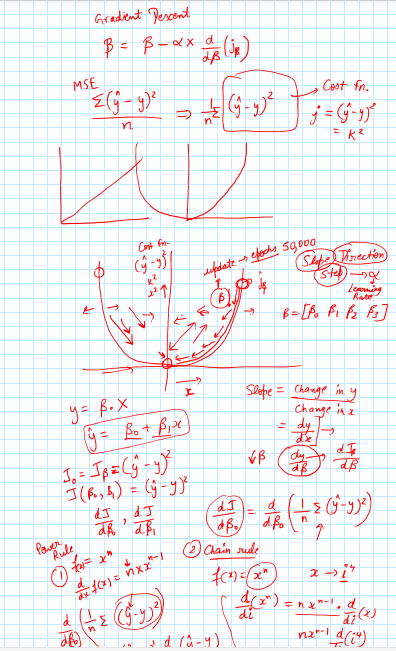 Gradient Descent
β = β - α × d/dβ (jβ)
MSE
Σ(ŷ - y)² / n ⇒ 1/n Σ (ŷ - y)²
→ Cost fn.
j = (ŷ - y)²
= k²
Cost fn.
(ŷ - y)²
k²
x²
update → epochs 50,000
β
jβ
Slope Direction
Step → α
Learning Rate
β = [β₀ β₁ β₂ β₃]
x
y = β · X
ŷ = β₀ + β₁x
J₀ = Jβ = (ŷ - y)²
J(β₀, β₁) = (ŷ - y)²
dJ/dβ₀ , dJ/dβ₁
Slope = Change in y / Change in x
= dy/dx →
↓β dy/dβ → dJβ/dβ
dJ/dβ₀ = d/dβ₀ (1/n Σ (ŷ - y)²)
Power Rule
① f(x) = xⁿ
d/dx f(x) = n × xⁿ⁻¹
d/dβ₀ (1/n Σ (ŷ - y)²)
② Chain rule
f(x) = xⁿ x → i⁴
d/di (xⁿ) = n xⁿ⁻¹ · d/di (x)
n xⁿ⁻¹ d/di (i⁴)
d (ŷ - y)